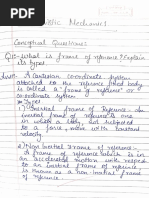 Mechanics
Conceptual Questions
Q:- what is frame of reference? Explain
its types
Ans:- A cartesian coordinate system
attached to the referance /Rigid body
is called a "frame of reference" or
coordinate system
Types
1) Inertial frame of reference:- An
inertial frame of reference is one
in which a body, not subjected
to a force, move with constant
velocity.
2) Non inertial frames of reference:-
A frame of reference which is in
an accelerated motion with respect
to an inertial frame of reference
is known as a non inertial frame
of reference